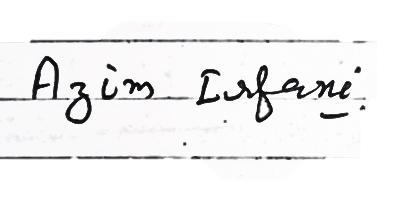 Azim Irfani